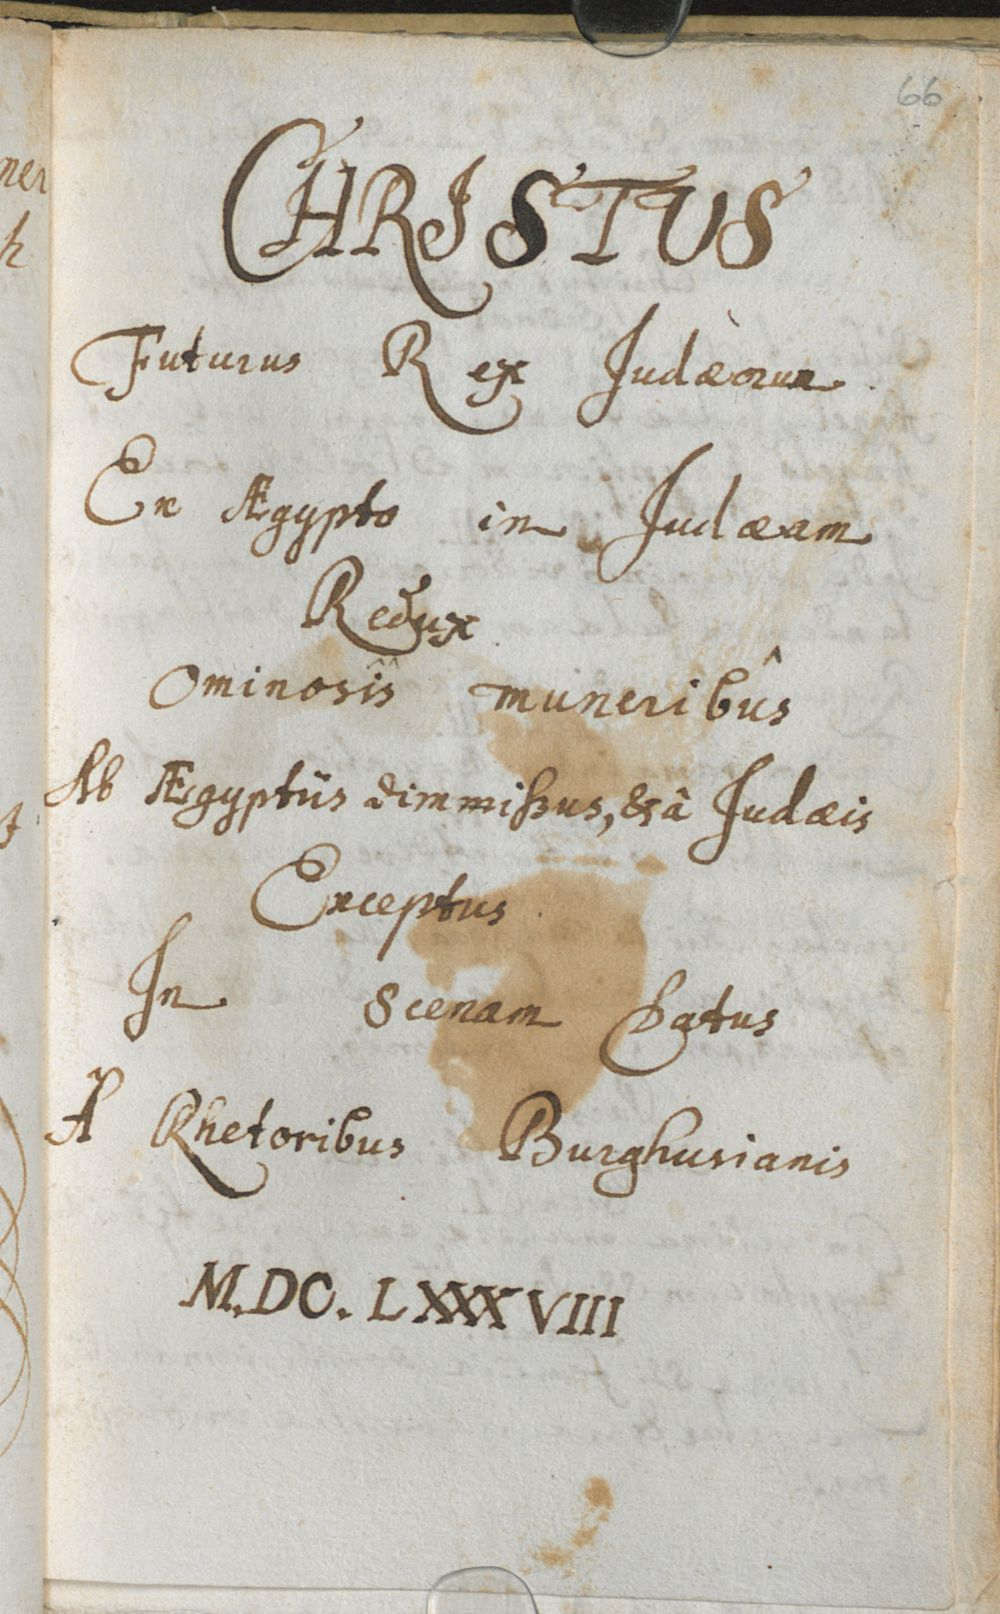 66
CHRISTUS
Futurus Rex Judæorum
Ex Ægypto in Judæam
Redux
Ominosis muneribûs
Ab Ægyptiis dimmissus, & â Judæis
Exceptus
In Scenam Datus
A Rhetoribus Burghusianis
M.DC.LXXXVIII